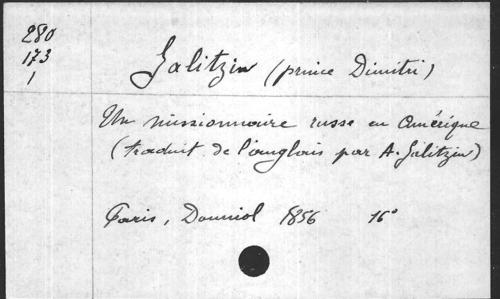 280
173
1
Galitzin (prince Dimitri)
Un missionnaire russe en Amérique
(traduit de l'anglais par A. Galitzin)
Paris, Douniol 1856 16°